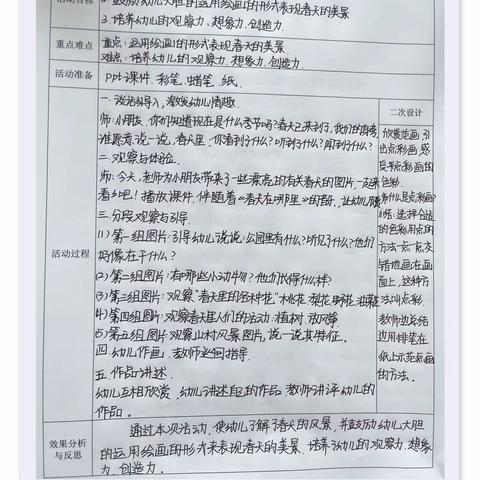 活动目标
2.鼓励幼儿大胆的运用绘画的形式表现春天的美景
3.培养幼儿的观察力、想象力、创造力。
重点难点
重点:运用绘画的形式表现春天的美景。
难点:培养幼儿的观察力、想象力、创造力。
活动准备
PPt课件、彩笔、蜡笔、纸、
活动过程
一、谈话引导入,激发幼儿情趣。
师:小朋友,你们知道现在是什么季节吗?春天已来到了,我们的
谁愿意说一说,春天里,你看到了什么?听到了什么?闻到了什么?
二、观察与体验。
师:今天,老师为小朋友带来了一些漂亮的有关春天的图片,一起来
看看吧!播放课件,伴随着《春天在哪里》的音乐,让幼儿
三、分段观察与引导。
(1)第一组图片:引导幼儿说说:公园里有什么?听见了什么?他们
好像在干什么?
(2)第二组图片:有哪些小动物?他们长得什么样?
(3)第三组图片:观察"春天里的各种花"桃花、梨花、油菜
(4)第四组图片:观察春天里人们的活动:植树、放风筝
(5)第五组图片:观察山村风景图片,说一说其特征。
四、幼儿作画,教师巡回指导.
五、作品讲述.
幼儿互相欣赏,幼儿讲述自己的作品,教师讲评幼儿的
作品。
二次设计
欣赏范画,引
出点彩画,感
受点彩画的
色彩.
什么是点彩画?
师:选择合适
的色彩用点的
方法一点一点交
错地画在画
面上,这种方
法叫点彩.
教师边总结
边用排笔在
纸上示范点画
的方法。
效果分析
与反思
通过本次活动,使幼儿了解了春天的风景,并鼓励幼儿大胆
的运用绘画的形式来表现春天的美景,培养了幼儿的观察力、想象
力、创造力。